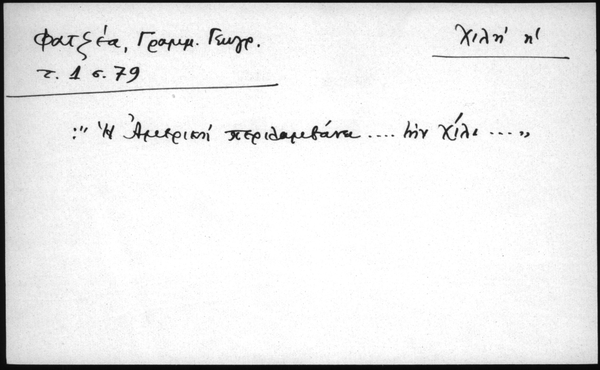 Φατζέα, Γραμμ. Γεωγρ.
Χιλή η΄
τ. 1 σ. 79
:" Ἡ Ἀμερικὴ περιλαμβάνει .... τὴν Χίλι ...."